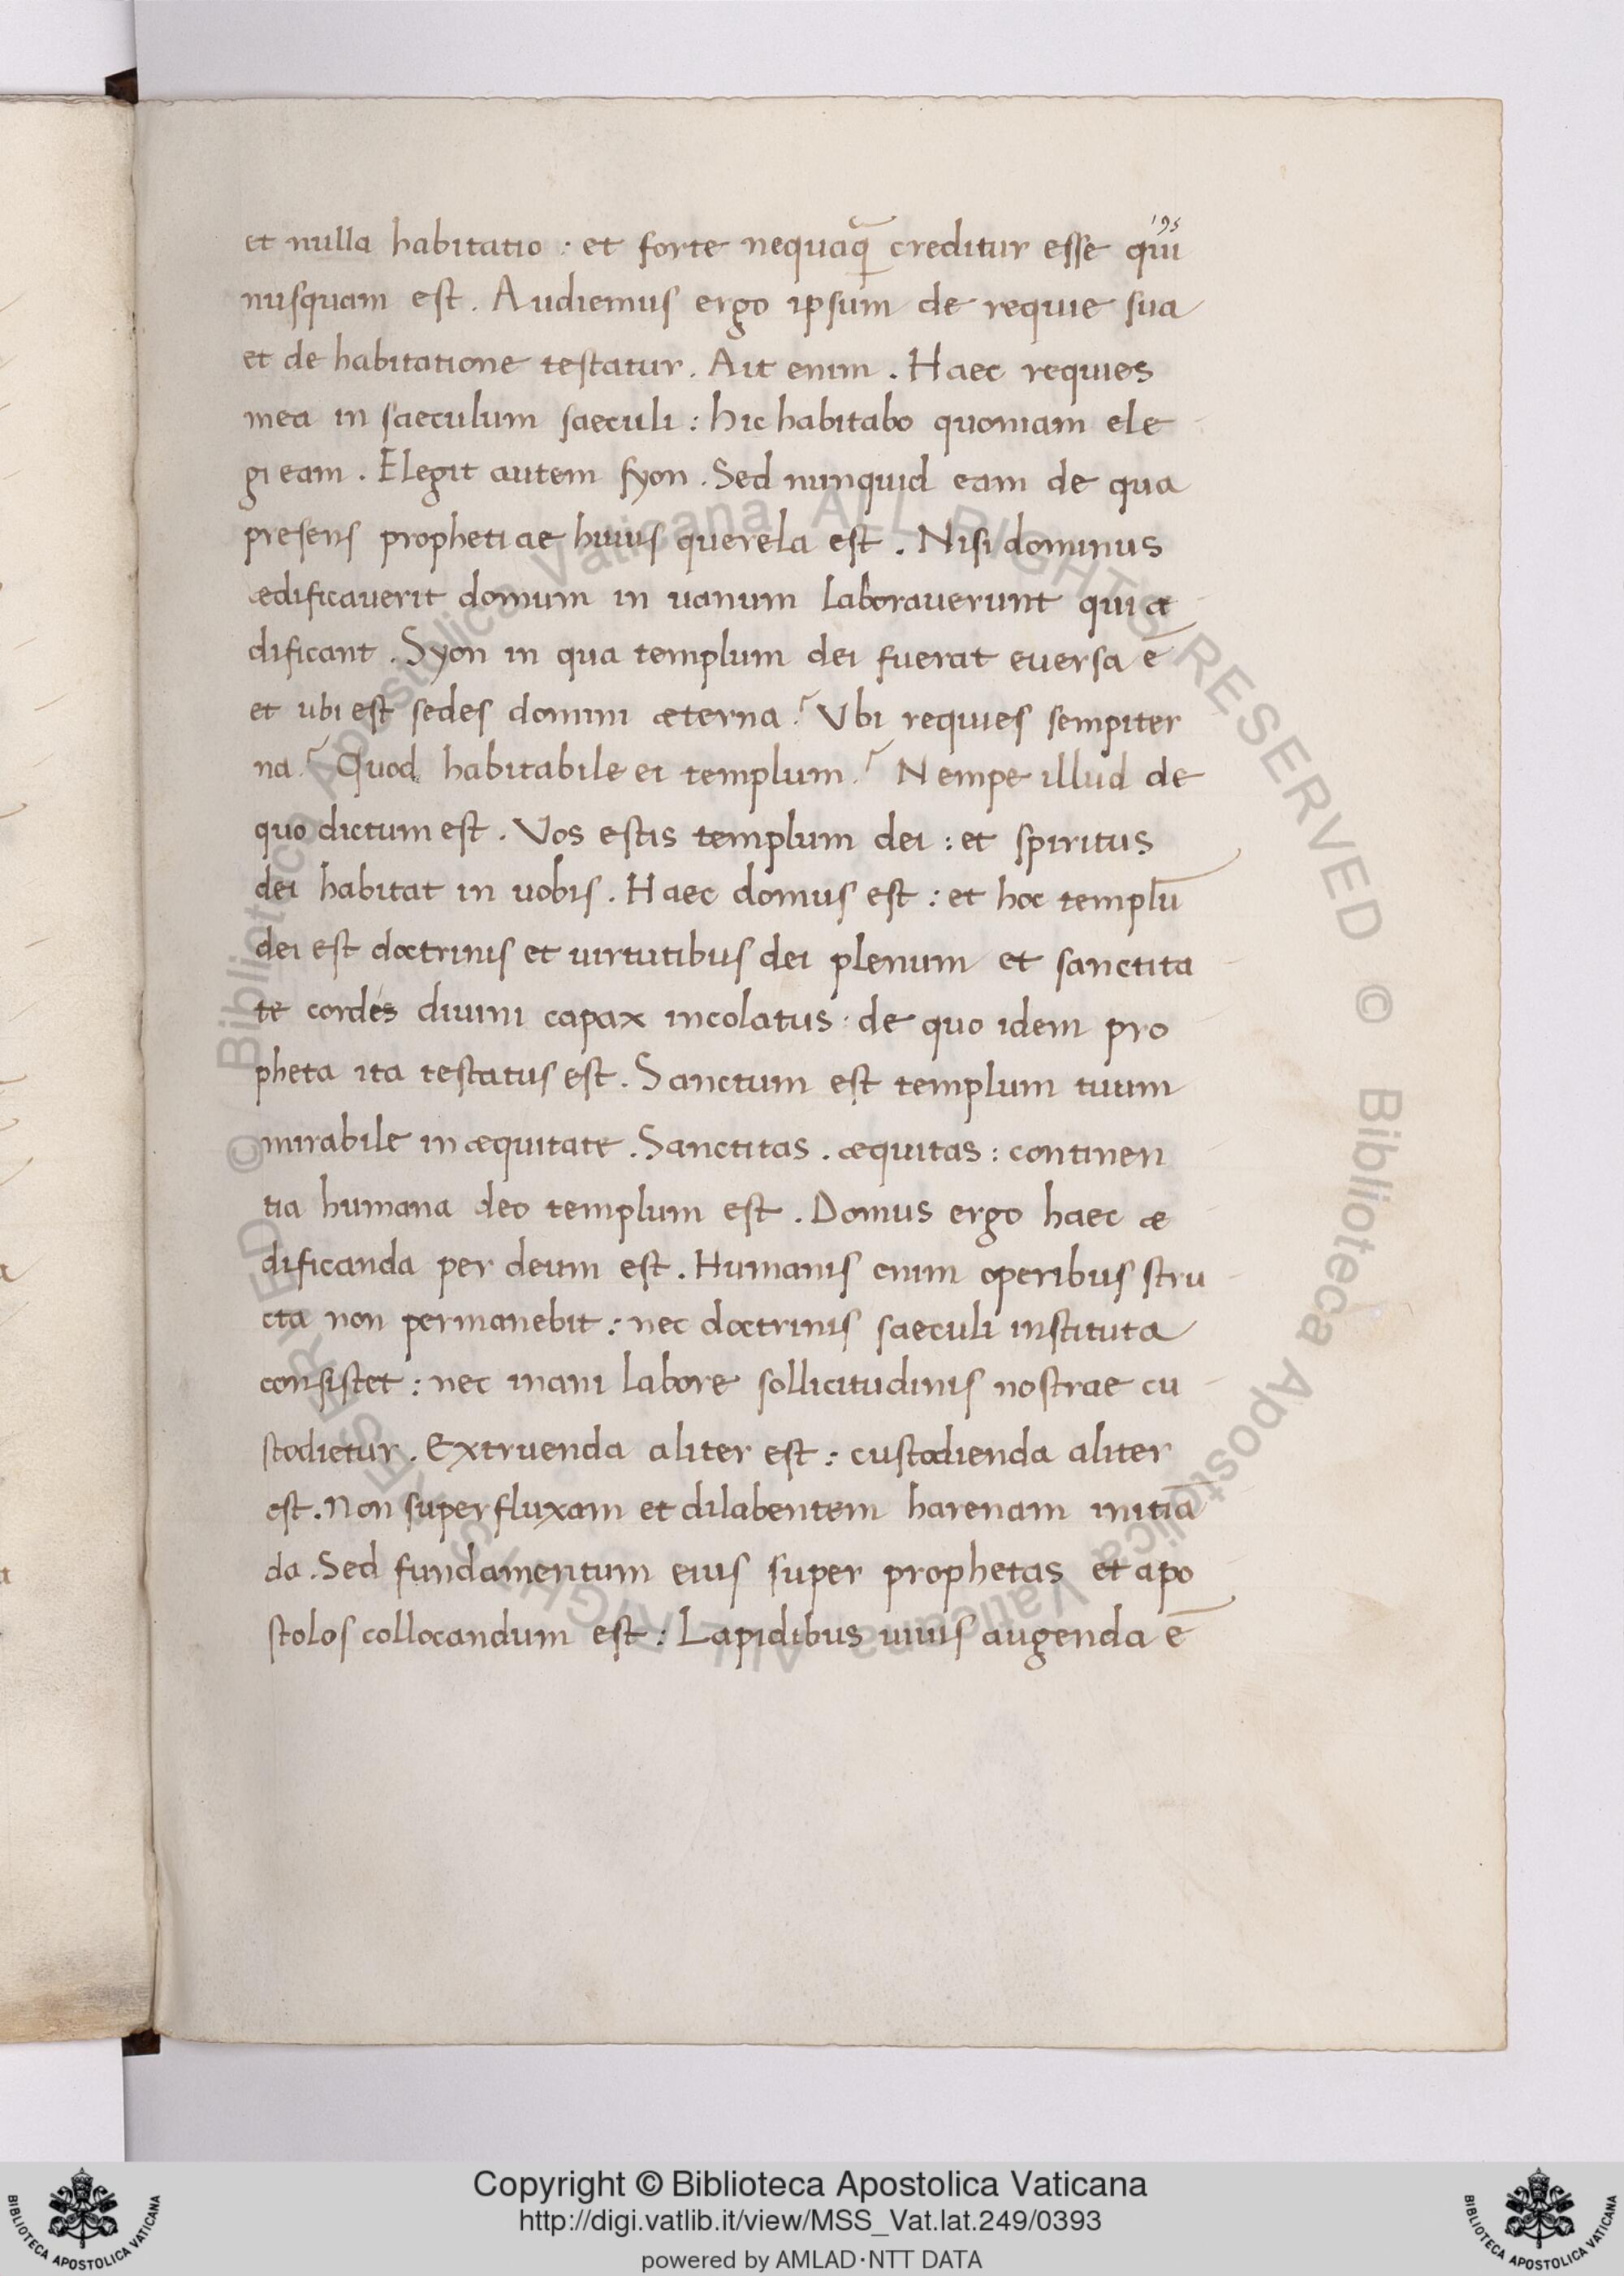 195
et nulla habitatio : et forte nequaq̃ creditur esse qui
nusquam est . Audiemus ergo ipsum de requie sua
et de habitatione testatur . Ait enim . Haec requies
mea in saeculum saeculi : hic habitabo quoniam ele
gi eam . Elegit autem syon . Sed nunquid eam de qua
presens prophetiae huius querela est . Nisi dominus
ædificauerit domum in uanum laborauerunt qui æ
dificant . Syon in qua templum dei fuerat euersa ē
et ubi est sedes domini æterna ? Vbi requies sempiter
na ? Quod habitabile ei templum ? Nempe illud de
quo dictum est . Vos estis templum dei : et spiritus
dei habitat in uobis . Haec domus est : et hoc templū
dei est doctrinis et uirtutibus dei plenum et sanctita
te cordes diuini capax incolatus · de quo idem pro
pheta ita testatus est . Sanctum est templum tuum
mirabile in æquitate . Sanctitas . æquitas : continen
tia humana deo templum est . Domus ergo haec æ
dificanda per deum est . Humanis enim operibus stru
cta non permanebit : nec doctrinis saeculi instituta
consistet : nec inani labore sollicitudinis nostrae cu
stodietur . Extruenda aliter est : custodienda aliter
est . Non super fluxam et dilabentem harenam initiā
da . Sed fundamentum eius super prophetas et apo
stolos collocandum est : Lapidibus uiuis augenda ē
© Biblioteca Apostolica Vaticana ALL RIGHTS RESERVED © Biblioteca Apostolica Vaticana ALL RIGHTS RESERVED
Copyright © Biblioteca Apostolica Vaticana
http://digi.vatlib.it/view/MSS_Vat.lat.249/0393
powered by AMLAD·NTT DATA
BIBLIOTECA APOSTOLICA VATICANA
BIBLIOTECA APOSTOLICA VATICANA